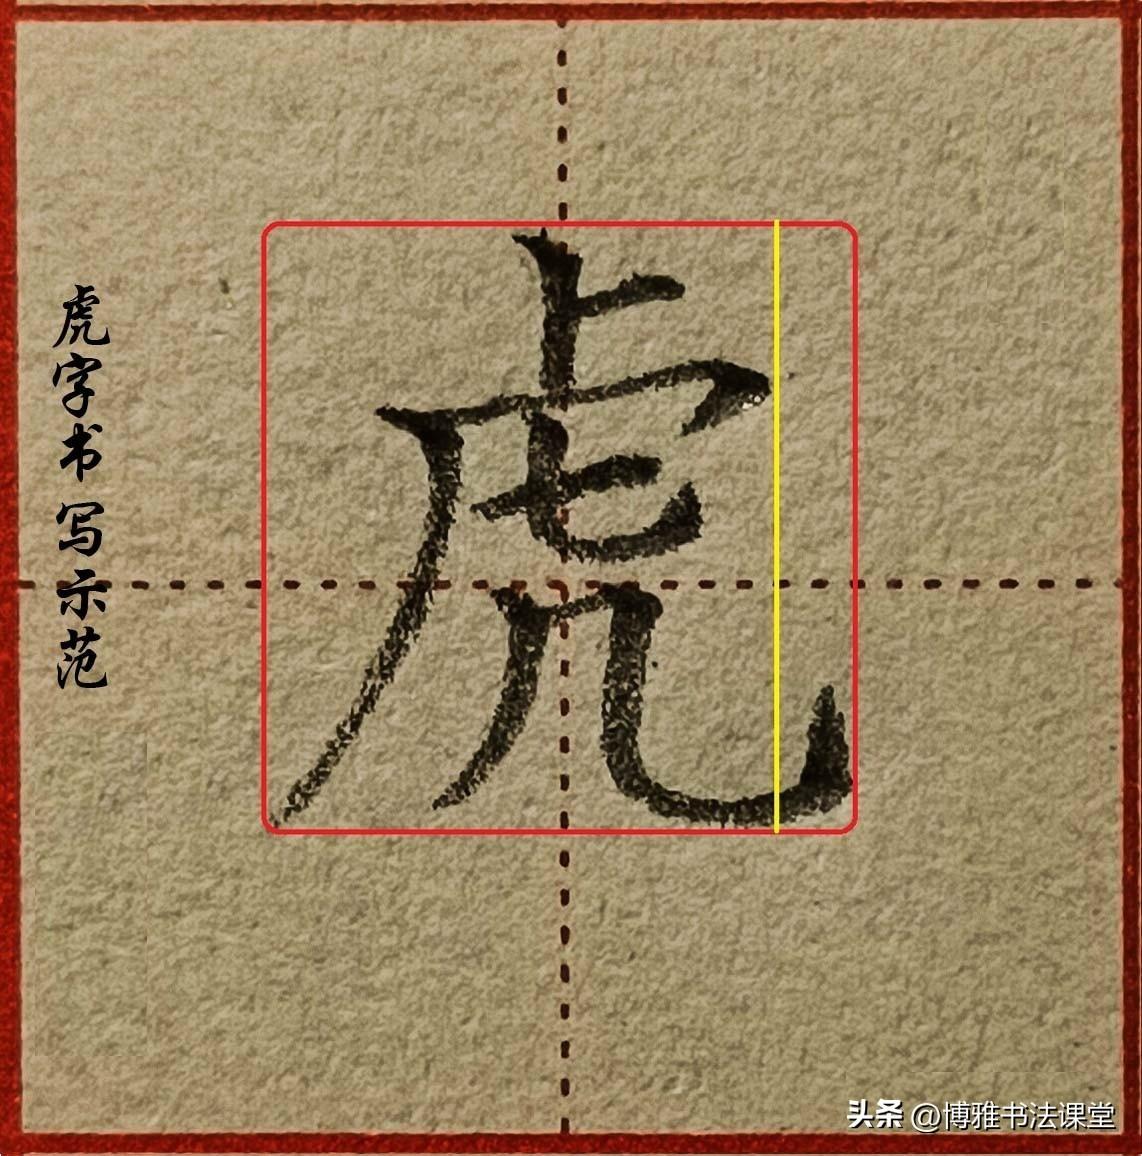 虎
虎字书写示范
头条 @博雅书法课堂